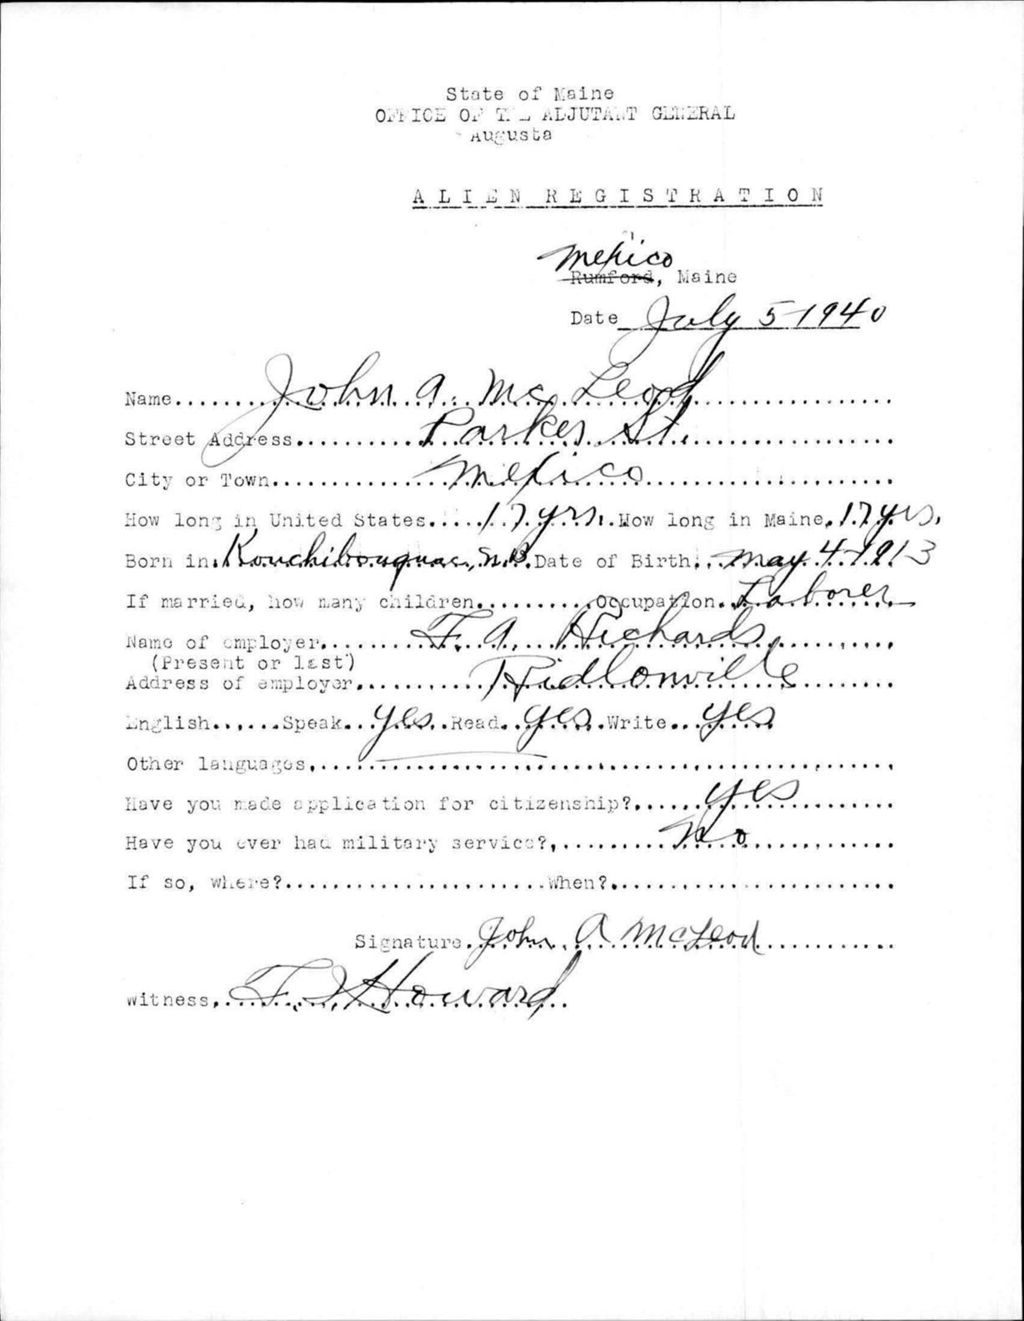 State of Maine
OFFICE OF THE ADJUTANT GENERAL
Augusta
ALIEN REGISTRATION
Mexico
Rumford, Maine
Date July 5-1940
Name John A. McLeod
Street Address Parker St.
City or Town Mexico
How long in United States 17 yrs. How long in Maine 17 yrs.
Born in Kouchibouquac, N.B. Date of Birth May 4-1913
If married, how many children Occupation Laborer
Name of employer F. A. Richards
(Present or last)
Address of employer Ridlonville
English Speak yes Read yes Write yes
Other languages
Have you made application for citizenship? yes
Have you ever had military service? no
If so, where? When?
Signature John A McLeod
Witness Howard